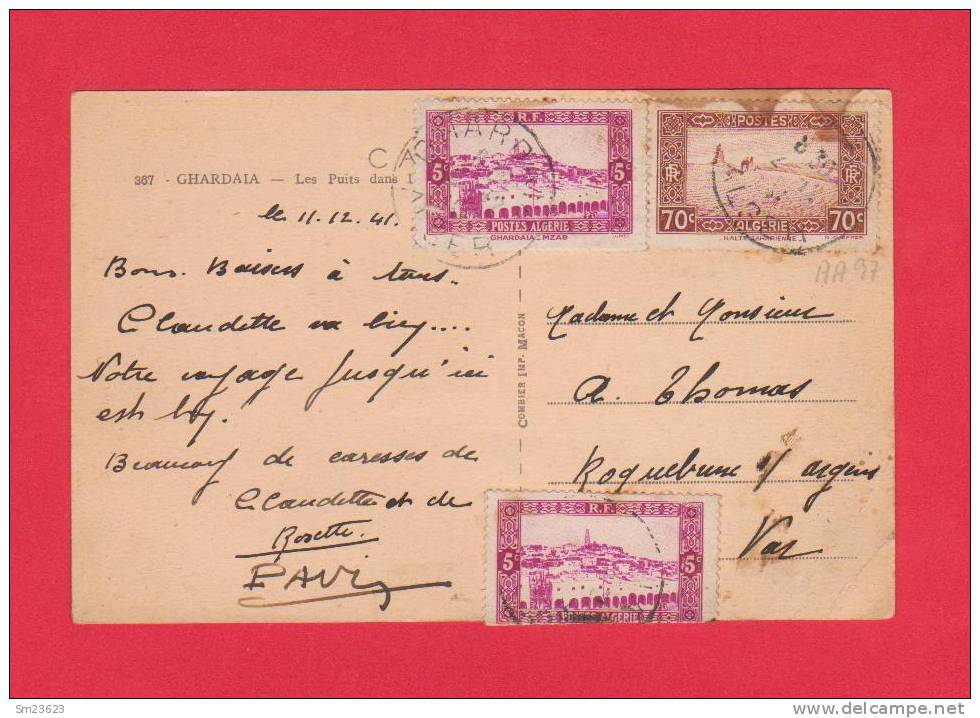 367 - GHARDAIA — Les Puits dans
le 11.12.41.
Bons Baisers à tous.
Claudette va bien....
Notre voyage jusqu'ici
est bon.
Beaucoup de caresses de
Claudette et de
Rosette.
R.F.
5c 5c
POSTES ALGERIE
GHARDAIA-MZAB
POSTES
RF RF
70c 70c
ALGERIE
8 30
AA97
COMBIER IMP. MACON
Madame et Monsieur
A. Thomas
Roquebrune s/ Argens
Var
R.F.
5c 5c
POSTES ALGERIE
Sm23623
www.delcampe.net